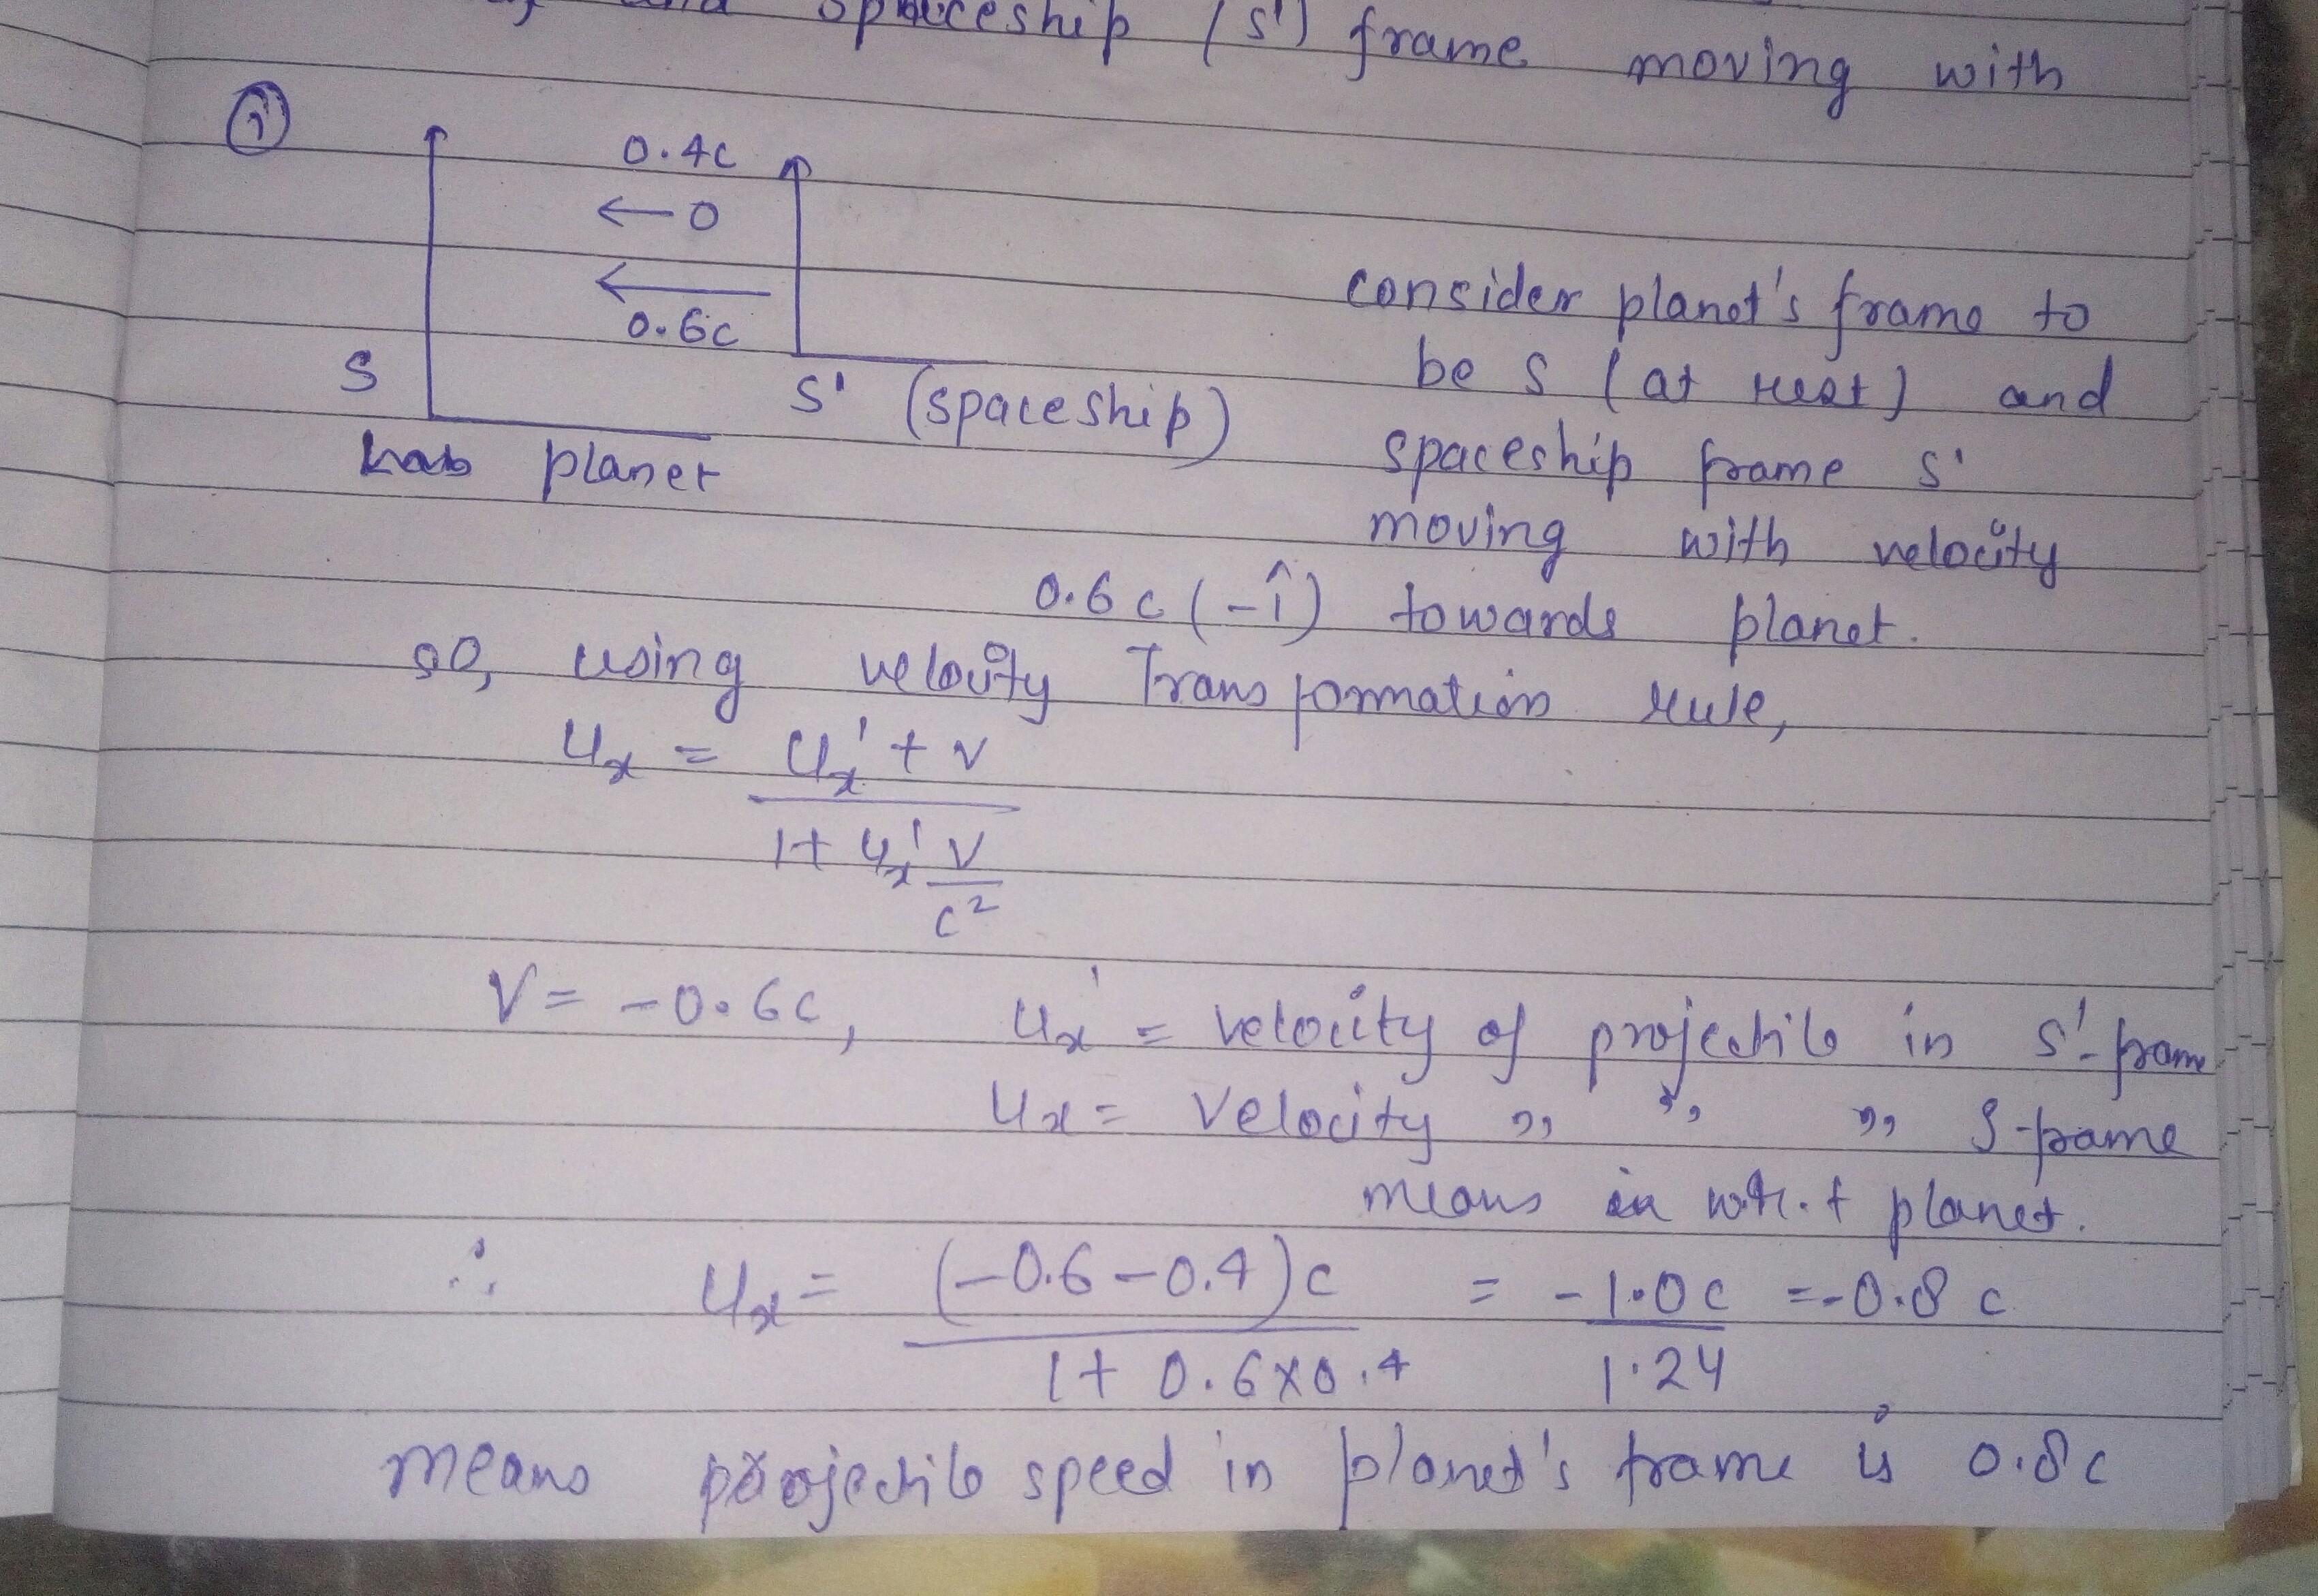 and spaceship (s') frame moving with
(i)
0.4c
← 0
←
0.6c
S
S' (spaceship)
planet
consider planet's frame to
be S (at rest) and
spaceship frame S'
moving with velocity
0.6c (-î) towards planet.
so, using velocity Transformation rule,
ux = ux' + v
1 + ux' v
c²
V = -0.6c, ux' = velocity of projectile in S'-frame
ux = velocity ,, ,, ,, S-frame
means w.r.t planet.
∴ ux = (-0.6-0.4)c = -1.0c = -0.8c
1 + 0.6x0.4 1.24
means projectile speed in planet's frame is 0.8c